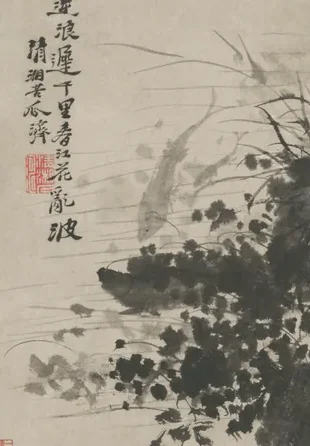 逆浪遲里春江花亂波
清湘苦瓜濟